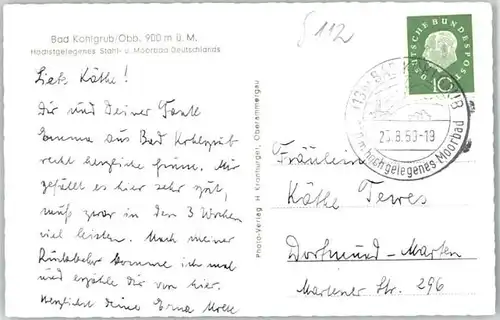 Bad Kohlgrub/Obb. 900 m ü. M.
Höchstgelegenes Stahl- u. Moorbad Deutschlands
§ 112
DEUTSCHE BUNDESPOST
10
Liebe Käthe!
Dir und Deiner Tante
Emma aus Bad Kohlgrub
recht herzliche Grüsse. Mir
gefällt es hier sehr gut,
muß zwar in den 3 Wochen
viel leisten. Nach meiner
Rückkehr komme ich mal
und erzähle dir von hier.
Herzlichst deine Erna
Photo-Verlag H. Kronburger, Oberammergau
BAD KOHLGRUB
höchstgelegenes Moorbad
Fräulein
Käthe Tewes
Dortmund-Marten
Martener Str. 296